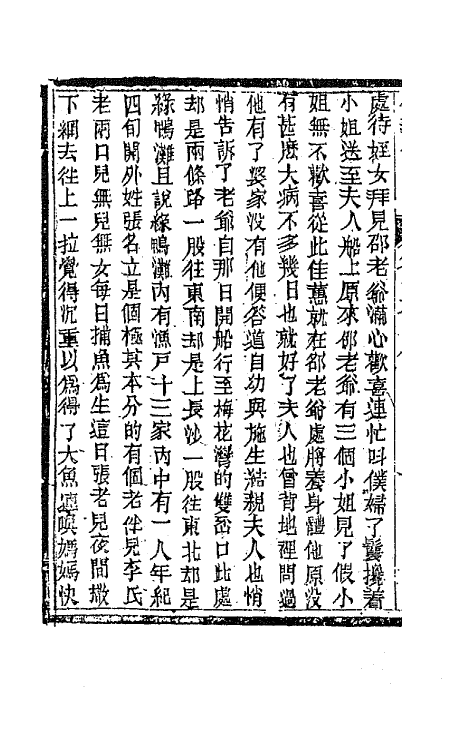 處待姪女拜見邵老爺滿心歡喜連忙叫僕婦丫鬟攙着
小姐送至夫人船上原來邵老爺有三個小姐見了假小
姐無不歡喜從此佳蕙就在邵老爺處將養身體他原没
有甚麽大病不多幾日也就好了夫人也曾背地裡問過
他有了婆家没有他便答道自幼與施生結親夫人也悄
悄告訴了老爺自那日開船行至梅花灣的雙岔口此處
却是兩條路一股往東南却是上長沙一股往東北却是
綠鴨灘且說綠鴨灘内有漁戸十三家内中有一人年紀
四旬開外姓張名立是個極其本分的有個老伴兒李氏
老兩口兒無兒無女每日捕魚爲生這日張老兒夜間撒
下網去往上一拉覺得沉重以爲得了大魚連喚媽媽快